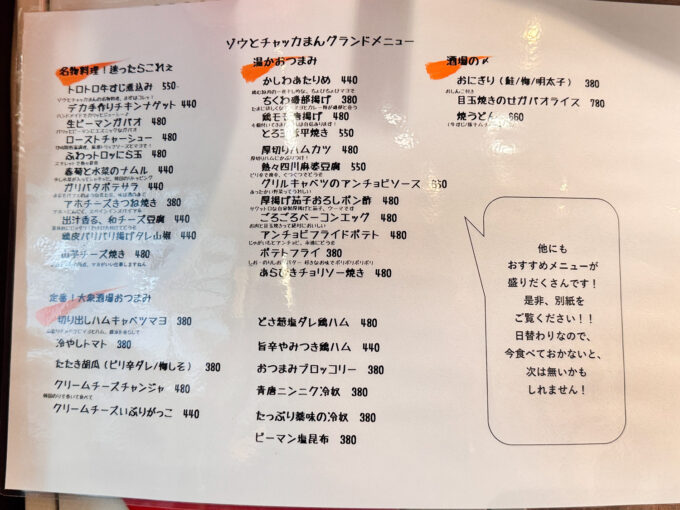 ゾウとチャッカまんグランドメニュー
名物料理！迷ったらこれぇ
トロトロ牛すじ煮込み 550
デカ手作りチキンナゲット 440
生ピーマンガパオ 480
ローストチャーシュー 480
ふわっトロッにら玉 480
春菊と水菜のナムル 440
ガリバタポテサラ 440
アホチーズきつね焼き 380
出汁香る、和チーズ豆腐 440
鶏皮パリパリ揚げダレ山椒 440
チーズ焼き 480
定番！大衆酒場おつまみ
切り出しハムキャベツマヨ 380
冷やしトマト 380
たたき胡瓜(ピリ辛ダレ/梅しそ) 380
クリームチーズチャンジャ 480
韓国のりを巻いて食べて
クリームチーズいぶりがっこ 440
温かおつまみ
かしわあたりめ 440
ちくわ磯部揚げ 380
鶏モモ 揚げ 480
とろ玉 平焼き 550
厚切りハムカツ 480
熱々四川麻婆豆腐 550
グリルキャベツのアンチョビソース 550
あったかい野菜ってうれしい
厚揚げ茄子おろしポン酢 480
ごろごろベーコンエッグ 480
アンチョビフライドポテト 480
ポテトフライ 380
あらびきチョリソー焼き 480
とさ葱塩ダレ鶏ハム 480
旨辛やみつき鶏ハム 440
おつまみブロッコリー 380
青唐ニンニク冷奴 380
たっぷり薬味の冷奴 380
ピーマン塩昆布 380
酒場の〆
おにぎり(鮭/梅/明太子) 380
おしんこ付き
目玉焼きのせガパオライス 780
焼うどん 660
他にも
おすすめメニューが
盛りだくさんです！
是非、別紙を
ご覧ください！！
日替わりなので、
今食べておかないと、
次は無いかも
しれません！